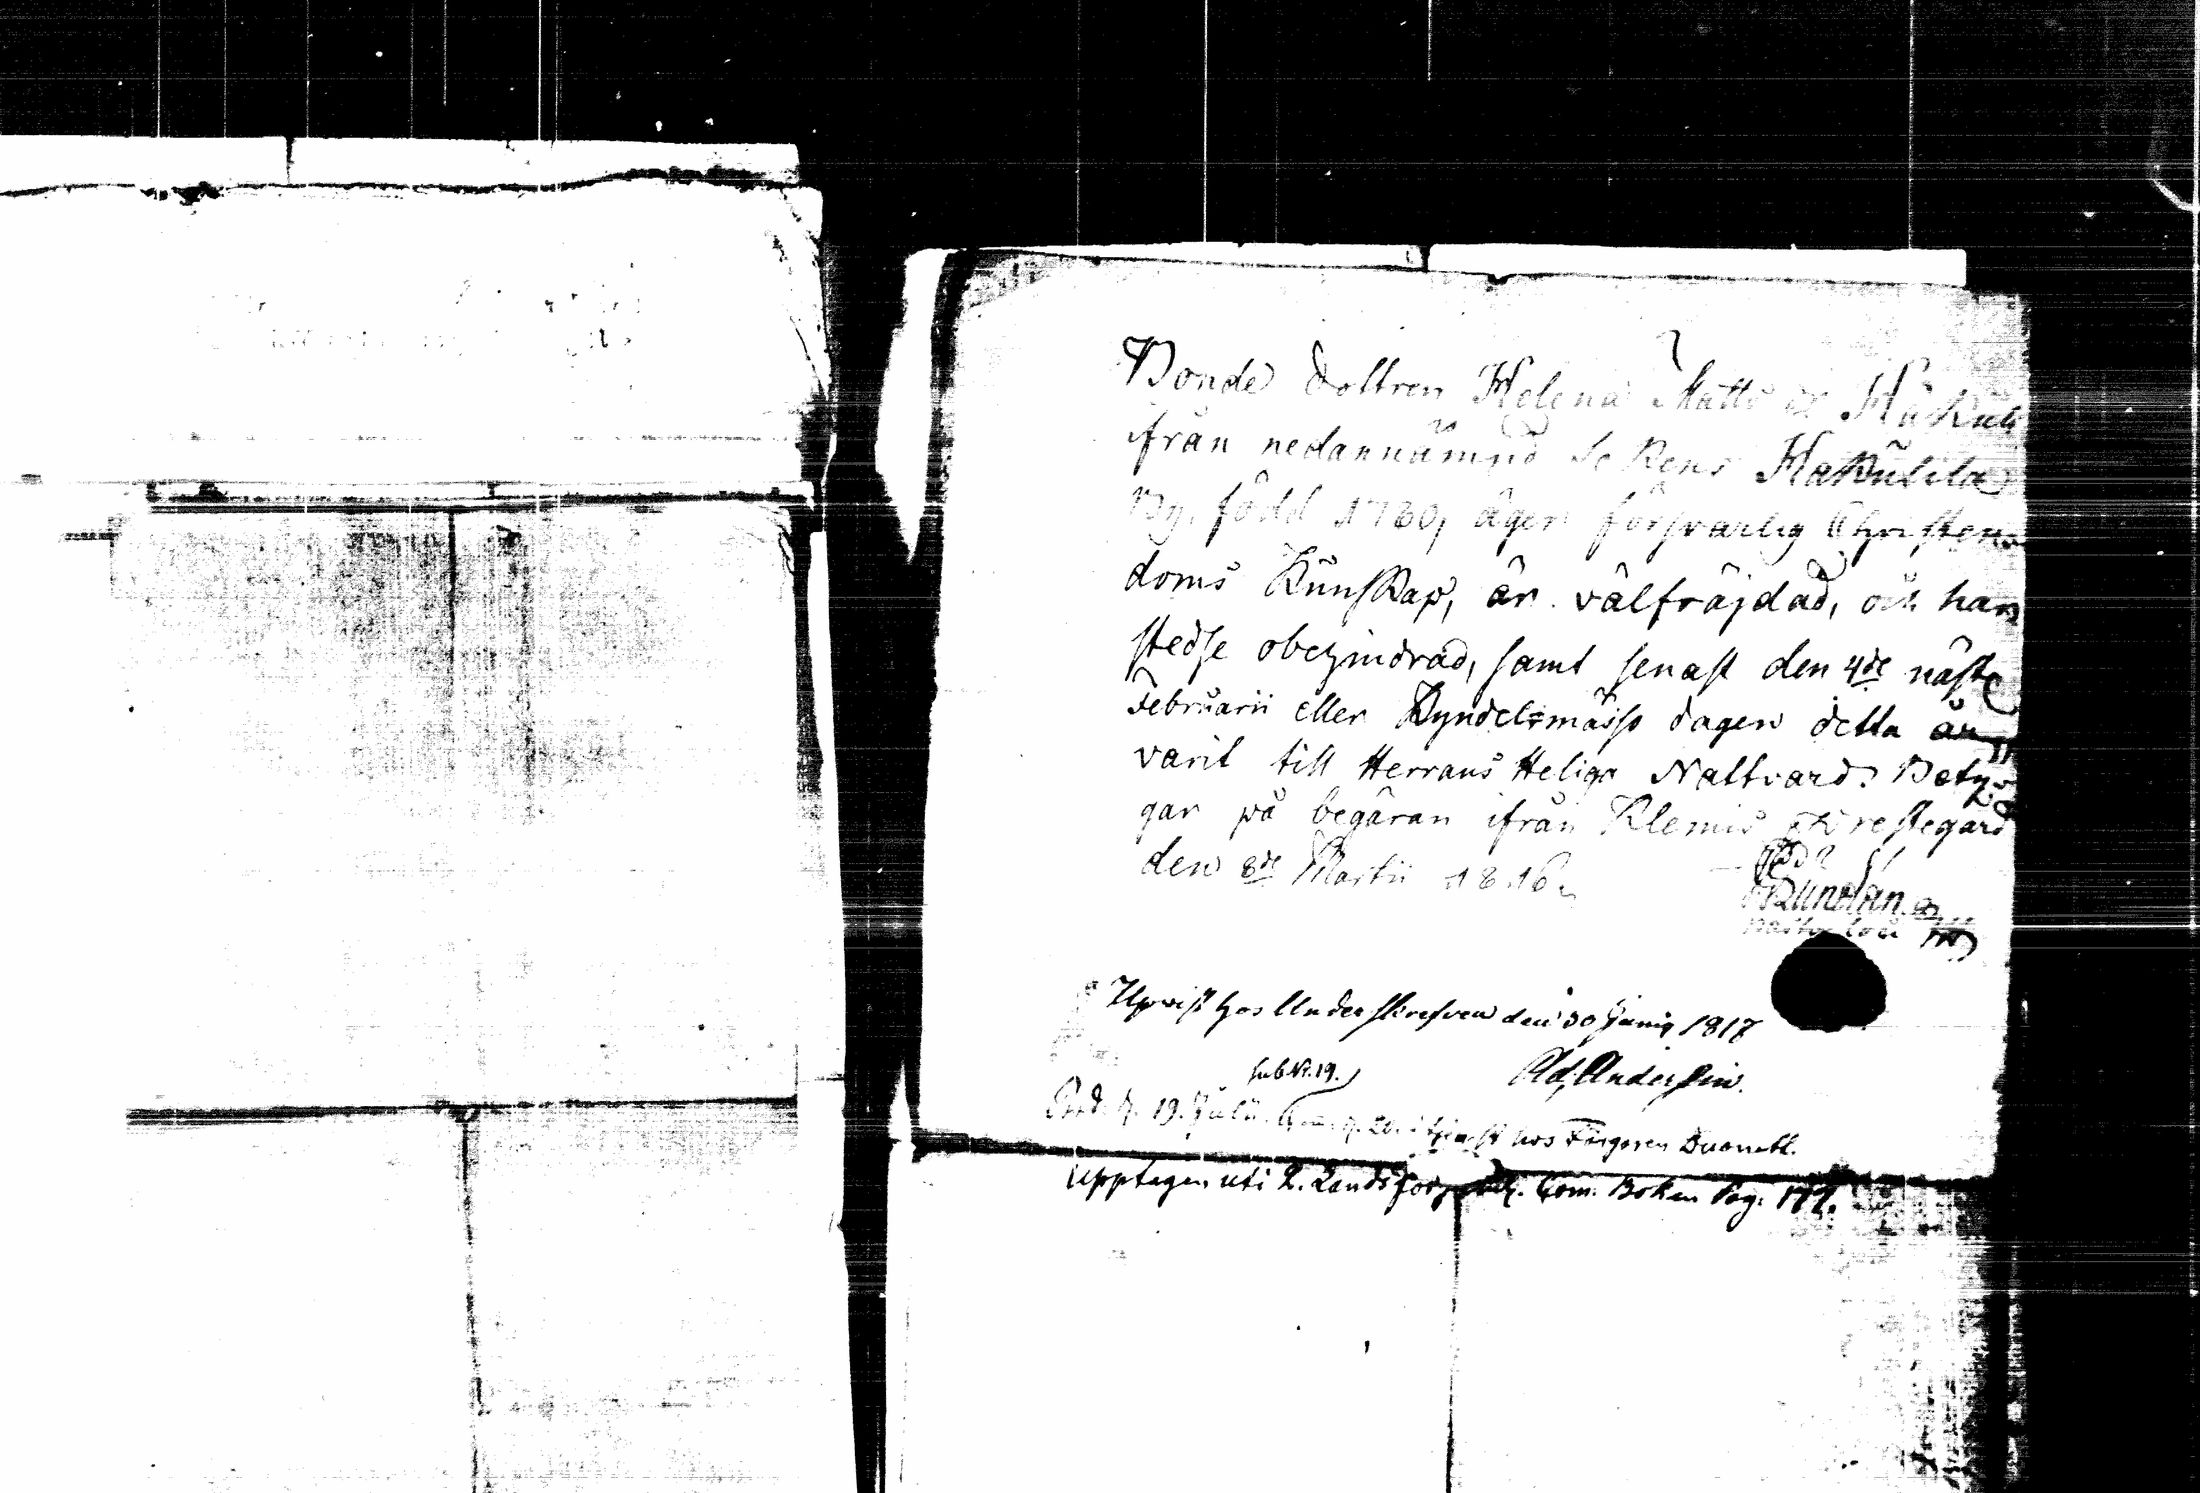 Bonde dottren Helena Matts dr Hakuli
ifrån nedannämnd Sokens Hakulila
By, född 1780, äger försvarlig Christen
doms Kunskap, är välfräjdad, och har
stedse obehindrad, samt senast den 4de näst
Februarii eller Kyndelsmässo dagen detta år
varit till Herrans Heliga Nattvard. Bety
gar på begäran ifrån Klemis Prestegård
den 8de Martii 1816.
Upvist hos Underskrefven den 30 Junij 1817
Ad. Andersin.
sub N. 19.
19. Julii. hos Färgaren
Upptagen uti L. Lands förs. Com. Boken Pag: 177.